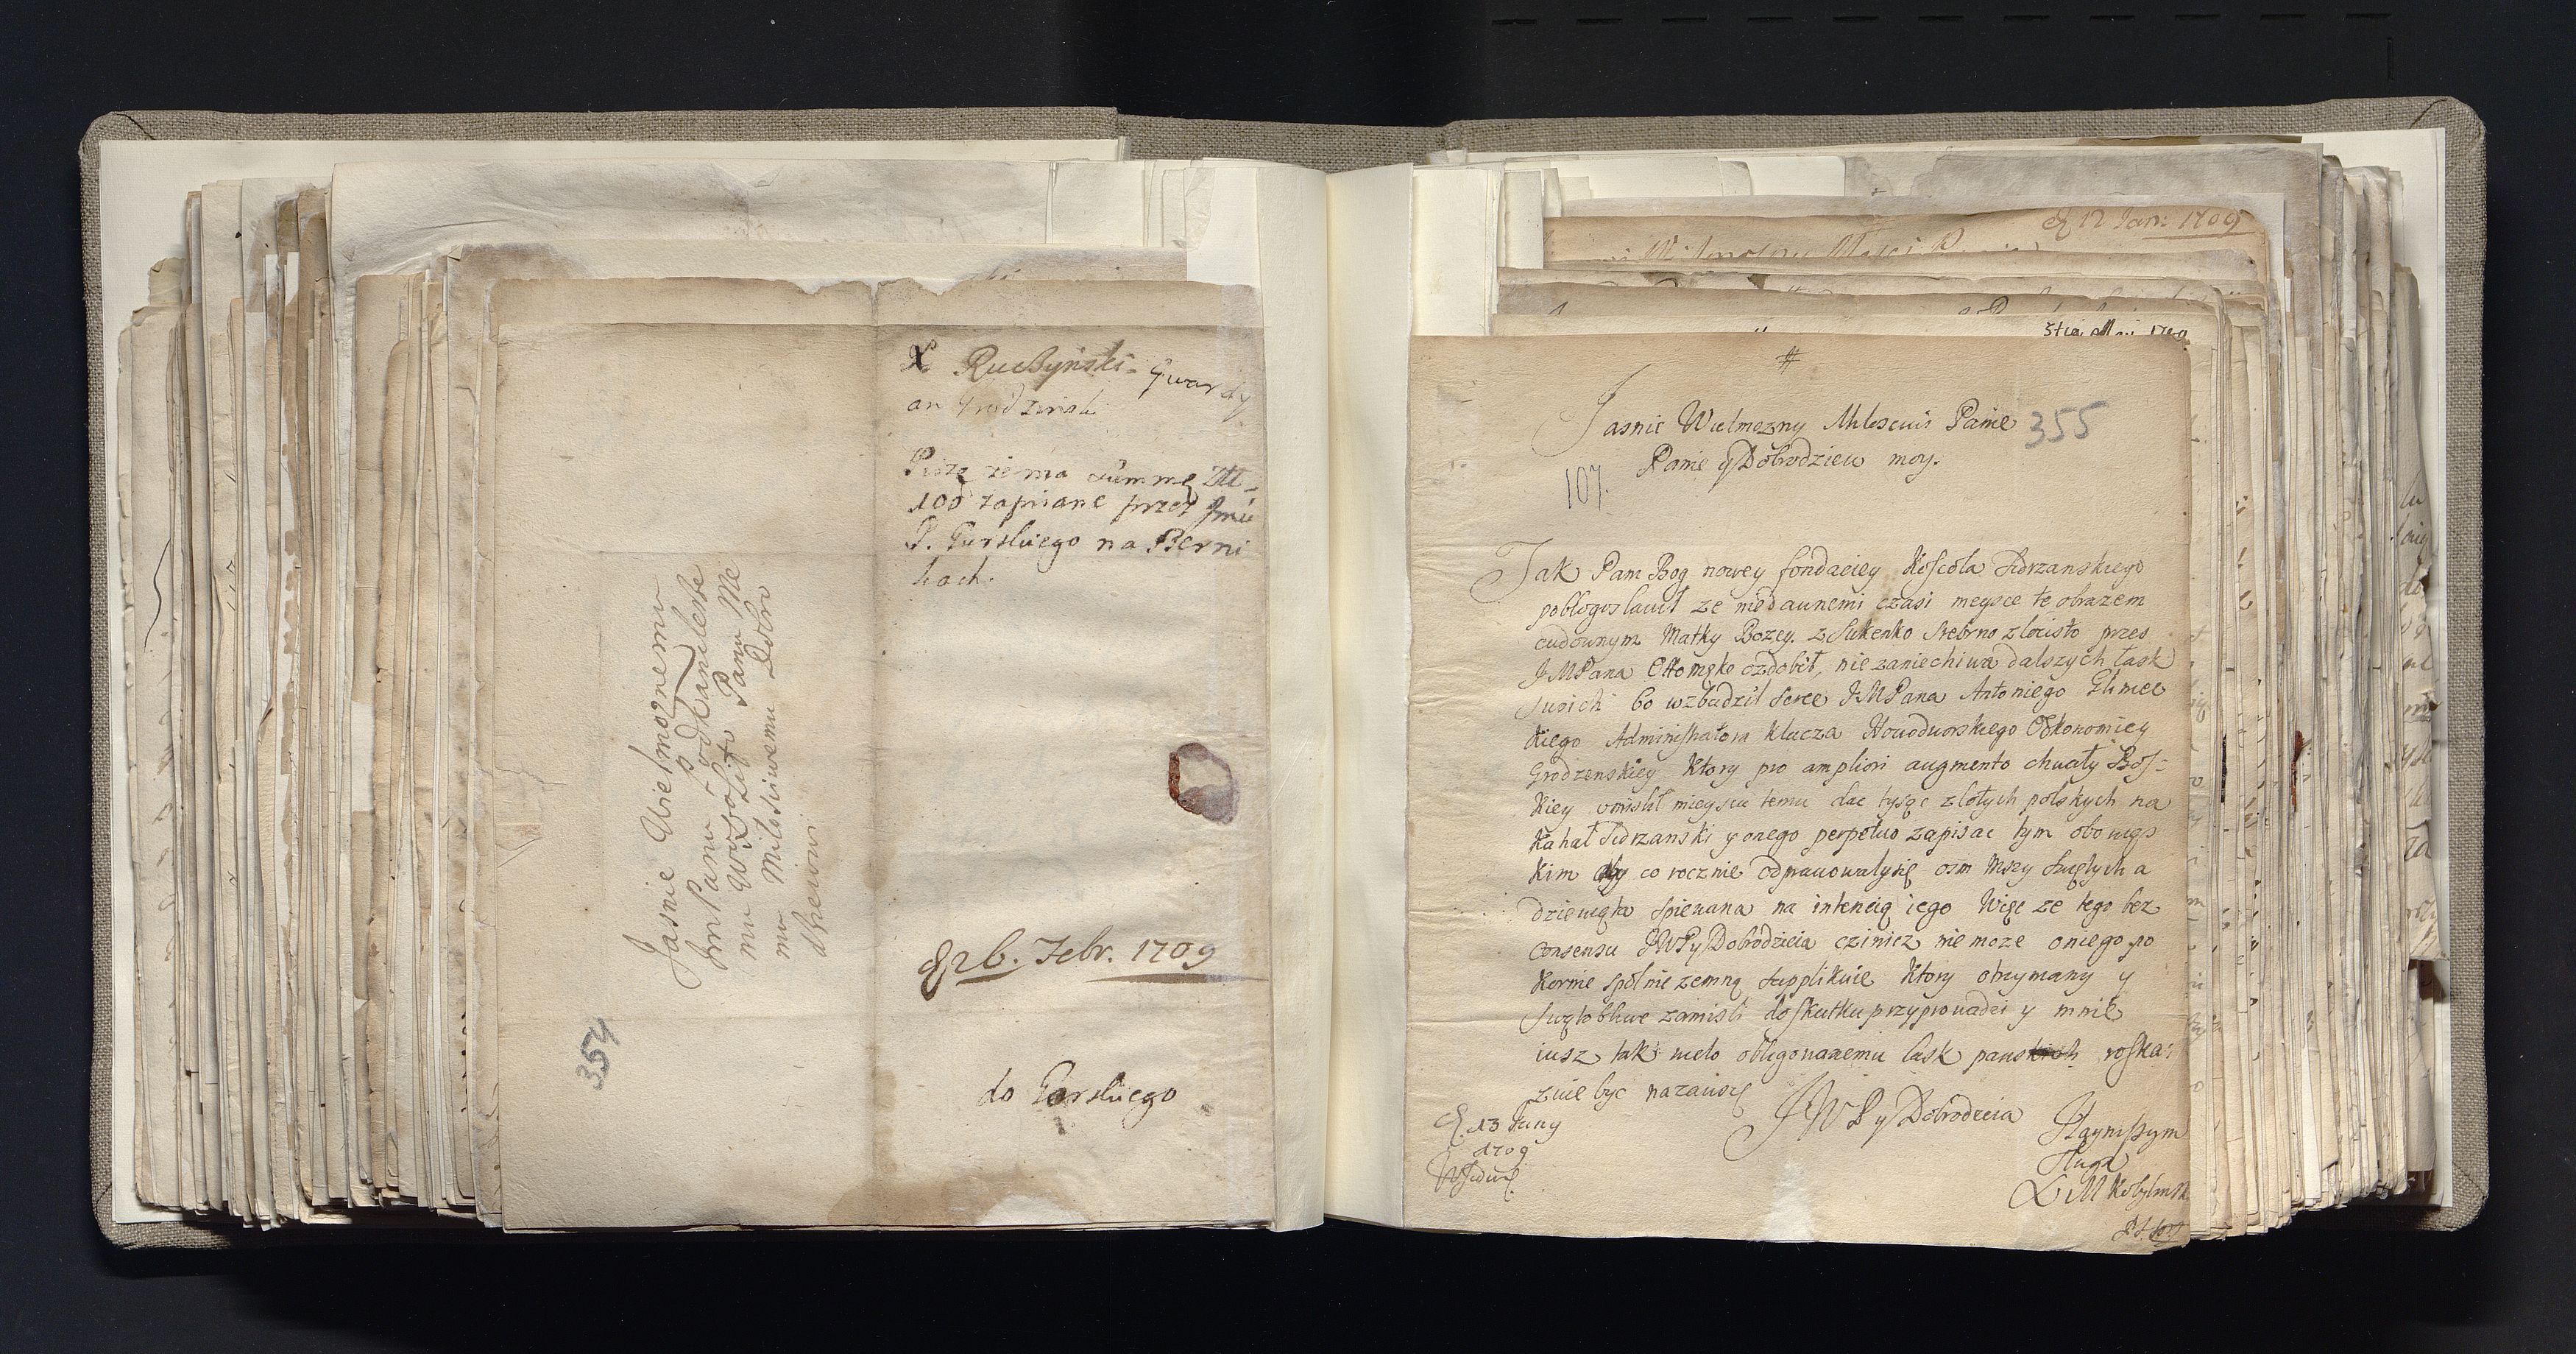 X. Ruszyński Gwardy
an Grodzinski
Pisze że ma summę Złł
100 zapisane przez Jmci
P. Gurskiego na Berni
kach.
Jasnie Wielmoznemu
Jm Panu podkanilerze
mu
mu Milosciwemu Panu
Dobro
dzieiowi
E 26. Febr. 1709
do Gorskiego
354
E 12 Jan: 1709
Jasnie Wielmozny Mhloscwis Panie
355
107.
Panie y Dobrodzieu moy.
Jak Pam Bog nowey fondaciey Koscola Sidrzanskiego
poblogoslawil ze niedaunemi czasi meysce te obrazem
cudownym Matky Bozey. z Sukenko Srebrno zlocisto przes
JMPana Ottomgke ozdobil, nie zaniechiwa dalszych lask
swoich bo wzbudzil serce JMPana Antoniego Glinec
kiego Administratora klucza Nowodworskiego Oekonomiey
Grodzenskiey Ktory pro ampliori augmento chwaly Bos=
kiey vmislil mieyscu temu dac tysąc zlotych polskych na
kahal Sidrzanski y onego perpetuo zapisac tym obowiąs
kim aby co rocznie odprawowalysię osm Mszy swiętych a
dziewiąta spiewana na intencią iego Więc ze tego bez
consensu JWPy Dobrodzieia czinicz nie moze oniego po
kornie spolnie zemną supplikuie Ktory otrzymany y
swątobliwe zamisli do skutku przyprowadzi y mnie
iusz tak wielo obligowanemu lask panskich roska:
zuie byc nazawszę
JWP y Dobrodzeia
Naynisszym
Sluga
E. 13 Juny
1709
L M Kobylinsk